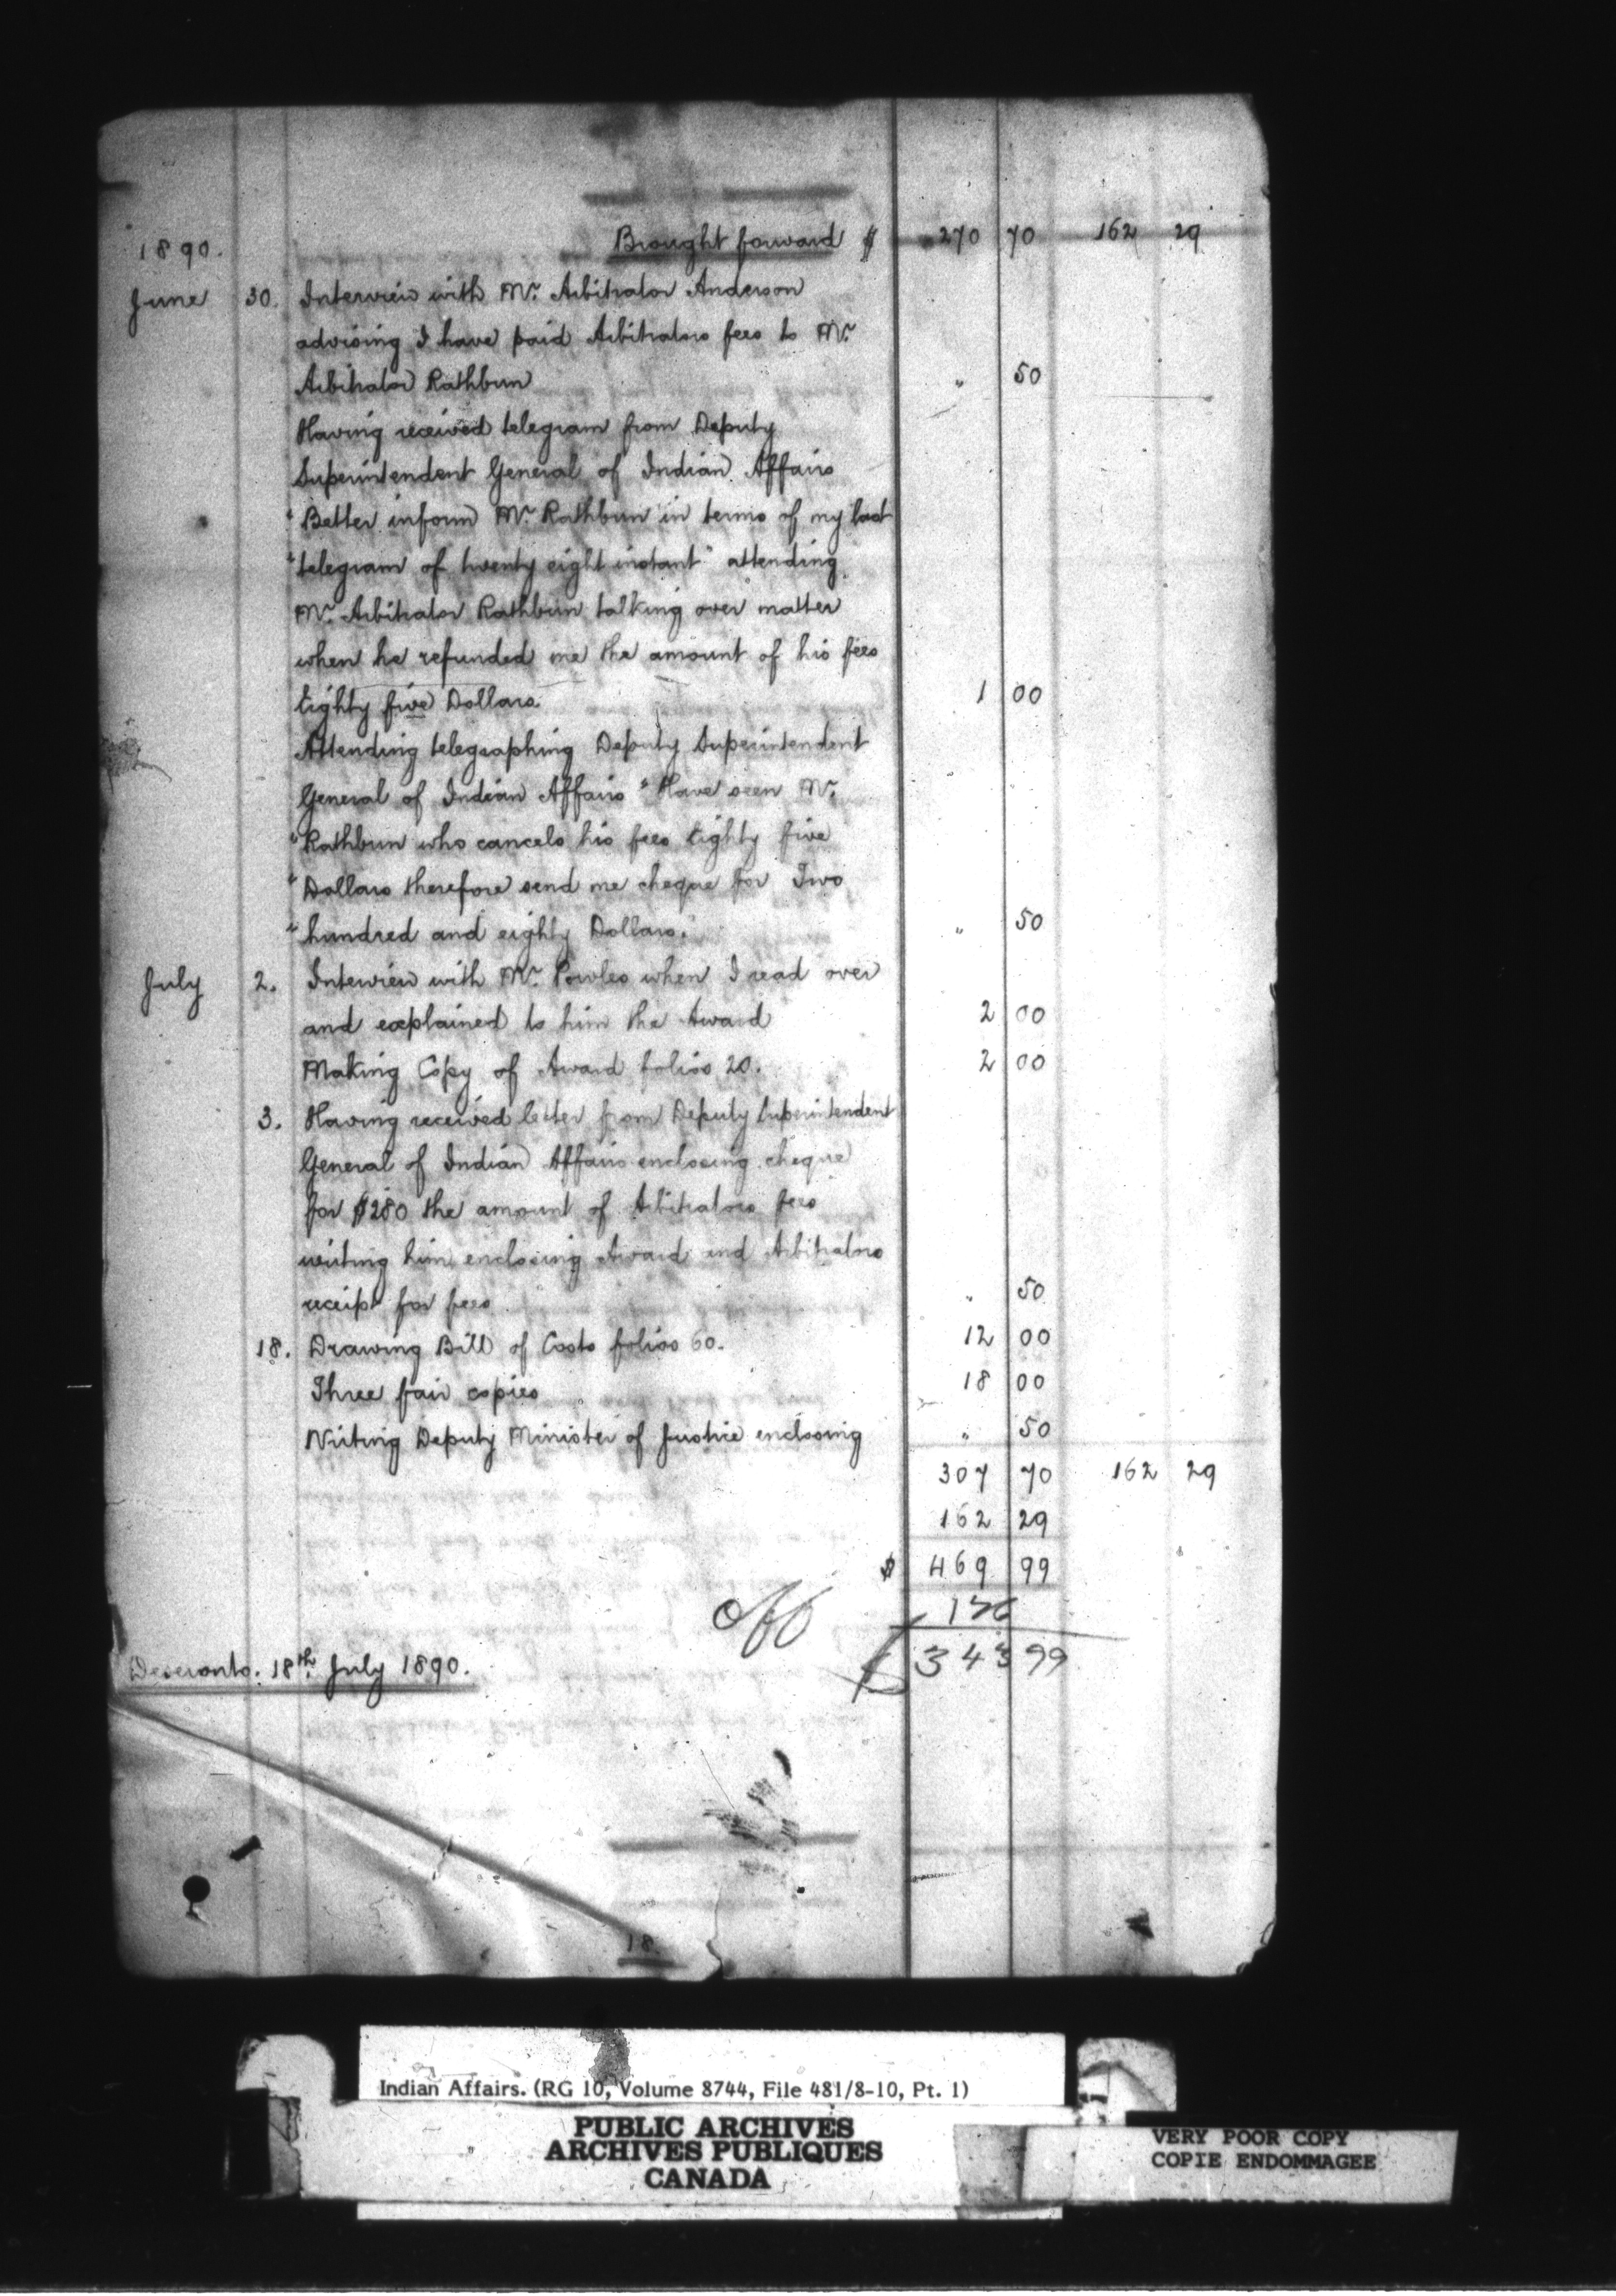 Brought forward $ 270 70 162 29
1890.
June 30. Interview with Mr. Arbitrator Anderson
advising I have paid Arbitrators fees to Mr.
Arbitrator Rathbun " 50
Having received telegram from Deputy
Superintendent General of Indian Affairs
"Better inform Mr. Rathbun in terms of my last
"telegram of twenty eight instant" attending
Mr. Arbitrator Rathbun talking over matter
when he refunded me the amount of his fees
Eighty five Dollars. 1 00
Attending telegraphing Deputy Superintendent
General of Indian Affairs "Have seen Mr.
"Rathbun who cancels his fees Eighty five
"Dollars therefore send me cheque for Two
"hundred and eighty Dollars." " 50
July 2. Interview with Mr. Powles when I read over
and explained to him the Award 2 00
Making Copy of Award folios 20. 2 00
3. Having received letter from Deputy Superintendent
General of Indian Affairs enclosing cheque
for $280 the amount of Arbitrators fees
writing him enclosing Award and Arbitrators
receipt for fees " 50
18. Drawing Bill of Costs folios 60. 12 00
Three fair copies 18 00
Writing Deputy Minister of Justice enclosing " 50
307 70 162 29
162 29
$ 469 99
off 126
$ 343 99
Deseronto. 18th. July 1890.
18
Indian Affairs. (RG 10, Volume 8744, File 481/8-10, Pt. 1)
PUBLIC ARCHIVES
ARCHIVES PUBLIQUES
CANADA
VERY POOR COPY
COPIE ENDOMMAGEE